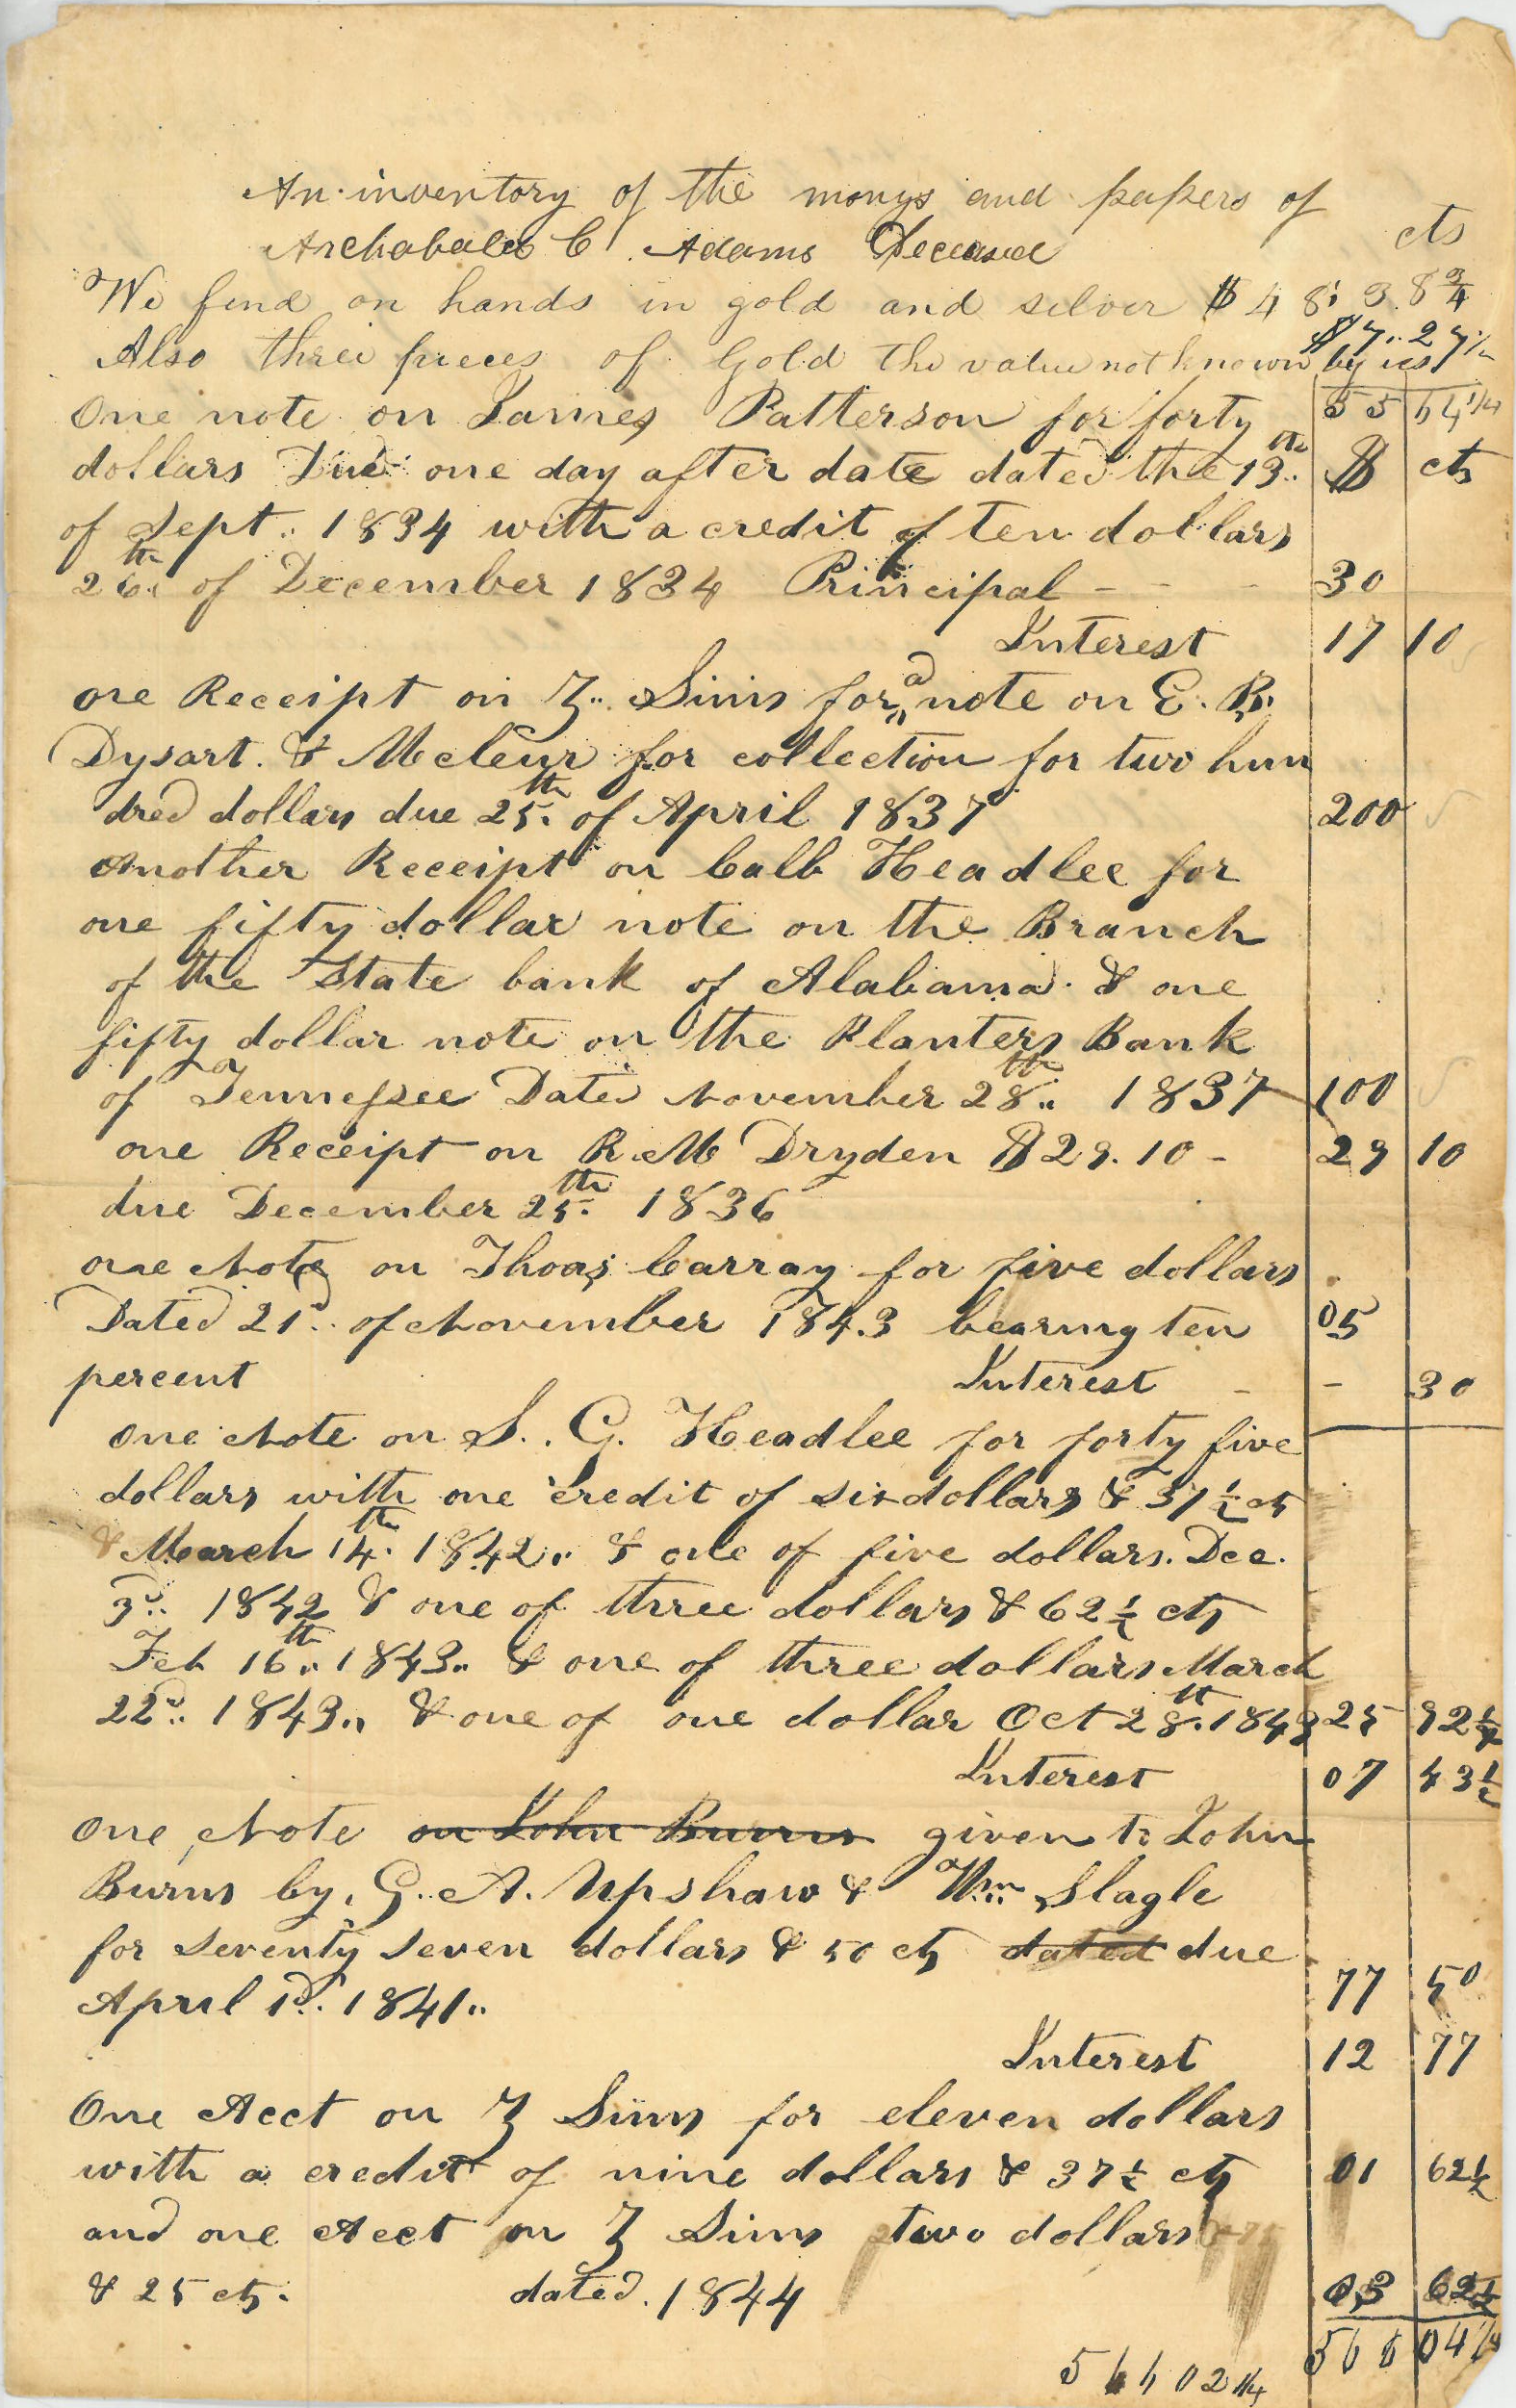 An inventory of the monys and papers of
Archabald C Adams Deceased
cts
We find on hands in gold and silver $ 48: 38 3/4
$7..27 1/2
Also three pieces of Gold the value not known by us
One note on James Patterson for forty
dollars Due one day after date dated the 13th.. $ cts
of Sept.. 1834 with a credit of ten dollars
26th.. of December 1834 Principal - - - 30
Interest 17 10
one Receipt on Z.. Sims for a note on E. B.
Dysart. & Mcleur for collection for two hun
dred dollars due 25th. of April 1837 200
Another Receipt on Calb Headlee for
one fifty dollar note on the Branch
of the State bank of Alabama. & one
fifty dollar note on the Planters Bank
of Tennessee Dated November 28th.. 1837 100
one Receipt on R. M Dryden $29.10 - 29 10
due December 25th. 1836
one Note on Thoas Carray for five dollars
Dated 21d.. of November 1843 bearing ten 05
percent Interest - - 30
One Note on S.. G. Headlee for forty five
dollars with one credit of six dollars & 37 1/2 cts
& March 14th. 1842.. & one of five dollars. Dec.
3d.. 1842 & one of three dollars & 62 1/2 cts
Feb 16th.. 1843.. & one of three dollars March
22d.. 1843.. & one of one dollar Oct 28th. 1843 25 92 1/4
Interest 07 43 1/2
One Note on John Burns given to John
Burns by. G. A. Upshaw & Wm.. Slagle
for seventy seven dollars & 50 cts dated due
April 1d.. 1841.. 77 50
Interest 12 77
One Acct on Z Sims for eleven dollars
with a credit of nine dollars & 37 1/2 cts 01 62 1/2
and one Acct on Z Sims two dollars
& 25 cts. dated. 1844 03 62 1/2
566 04 1/4
566 02 1/4